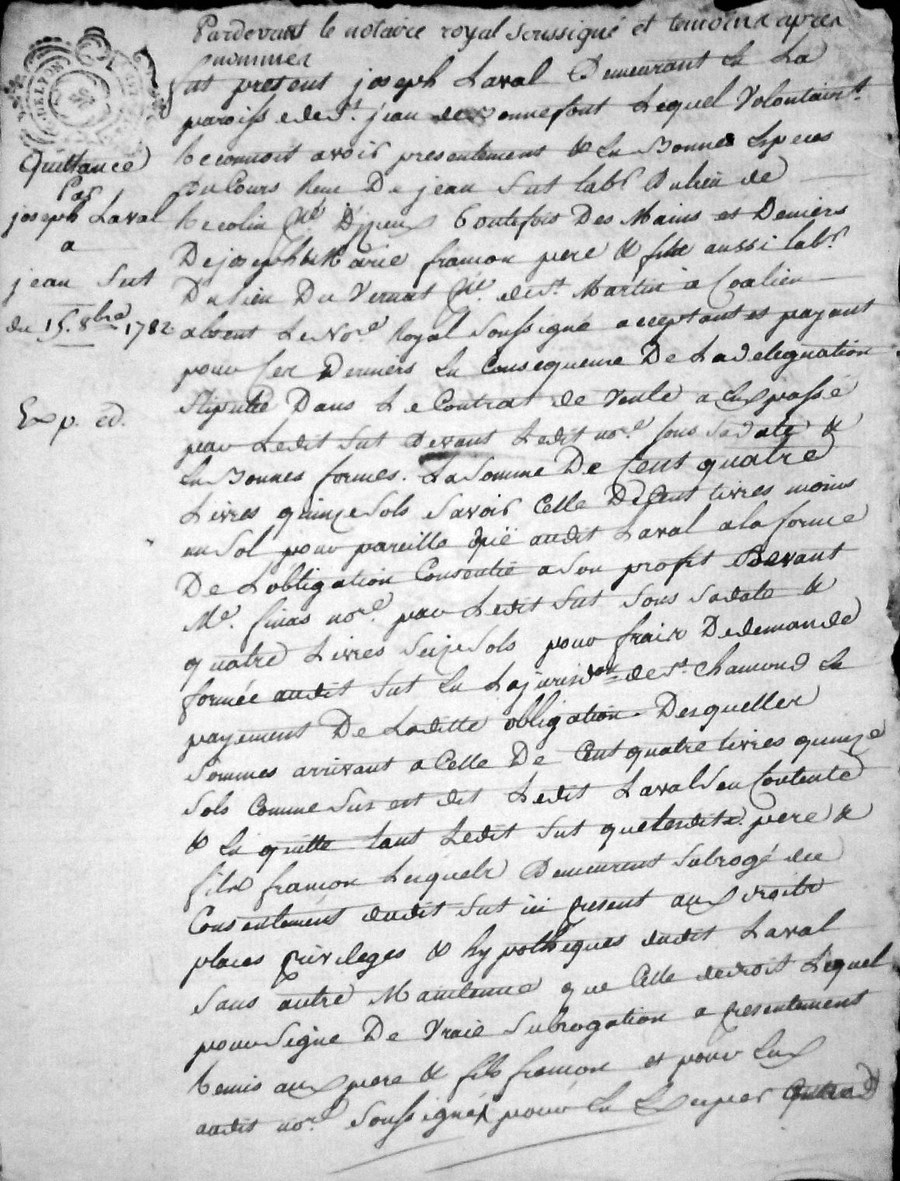 Pardevant le notaire royal soussigné et temoins apres
nommés
fut present joseph Laval Demeurant en La
paroisse de St. jean de Bonnefont Lequel Volontairt.
Quittance
Par
joseph Laval
a
jean Sut
du 15. 8bre 1782
Exp. ed.
Reconnoit avoir presentement & En Bonnes Especes
Du Cours Reçu De jean Sut labr. Du lieu de
toutefois Des Mains et Deniers
De joseph & Marie framon pere & fils aussi labr.
Du lieu Du Vernat de St. Martin a Coalieu
absent Le Nore. Royal Soussigné acceptant et payant
pour Ses Deniers En Consequence De La delegation
Stipulée Dans Le Contrat de Vente a Eux passé
par Ledit Sut Devant Ledit nore. sous sa date &
En Bonnes formes. La Somme De Cent quatre
Livres quinze Sols Savoir Celle De Cent livres moins
un Sol pour pareille düe audit Laval a la forme
De Lobligation Consentie a Son profit Devant
Me. finas nore. par Ledit Sut Sous Sa date &
quatre Livres Seize Sols pour frais De demande
formée audit Sut En La jurisdon de St. Chamond En
payement De Laditte obligation. Desquelles
Sommes arrivant a Celle De Cent quatre livres quinze
Sols Comme Sus est dit Ledit Laval Sen Contente
& En quitte tant Ledit Sut que lesdits. pere &
fils framon Lesquels Demeurent Subrogé du
Consentement dudit Sut ici present aux droits
places privileges & hypotheques dudit Laval
Sans autre Maintenue que Celle de droit Lequel
pour Signe De Vraie Subrogation a presentement
Remis aux pere & fils framon et pour Eux
audit nore. Soussigné pour En